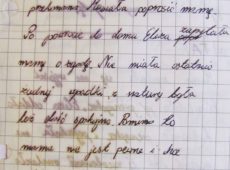 poprosić mamę.
Po powrocie do domu Eliza zapytała
mamy o zgodę. Nie miała ostatnio
żadnej wpadki, z natury była
też dość spokojna. Pomimo to
mama nie jest pewna i chce